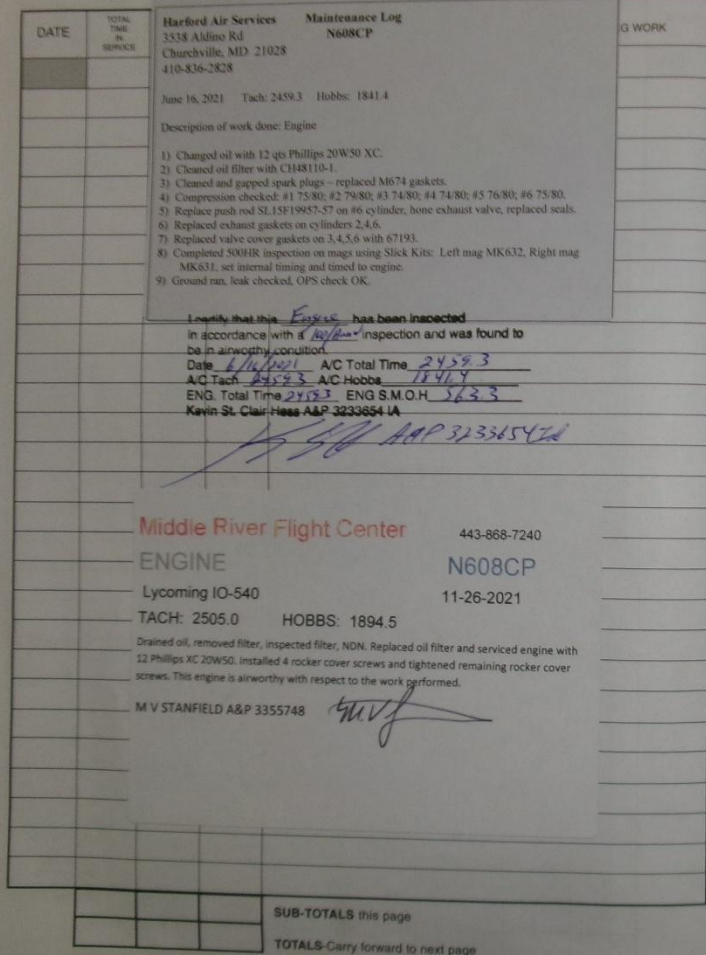 DATE
TOTAL
TIME
IN
SERVICE
G WORK
Harford Air Services Maintenance Log
3538 Aldino Rd N608CP
Churchville, MD 21028
410-836-2828
June 16, 2021 Tach: 2459.3 Hobbs: 1841.4
Description of work done: Engine
1) Changed oil with 12 qts Phillips 20W50 XC.
2) Cleaned oil filter with CH48110-1.
3) Cleaned and gapped spark plugs – replaced M674 gaskets.
4) Compression checked: #1 75/80; #2 79/80; #3 74/80; #4 74/80; #5 76/80; #6 75/80.
5) Replace push rod SL15F19957-57 on #6 cylinder, hone exhaust valve, replaced seals.
6) Replaced exhaust gaskets on cylinders 2,4,6.
7) Replaced valve cover gaskets on 3,4,5,6 with 67193.
8) Completed 500HR inspection on mags using Slick Kits: Left mag MK632, Right mag
MK631, set internal timing and timed to engine.
9) Ground ran, leak checked, OPS check OK.
I certify that this Engine has been inspected
in accordance with a 100/hour inspection and was found to
be in airworthy condition.
Date 6/16/2021 A/C Total Time 2459.3
A/C Tach 2459.3 A/C Hobbs 1841.4
ENG. Total Time 2459.3 ENG S.M.O.H 563.3
Kevin St. Clair Hess A&P 3233654 IA
A&P 3233654IA
Middle River Flight Center 443-868-7240
ENGINE N608CP
Lycoming IO-540 11-26-2021
TACH: 2505.0 HOBBS: 1894.5
Drained oil, removed filter, inspected filter, NDN. Replaced oil filter and serviced engine with
12 Phillips XC 20W50. Installed 4 rocker cover screws and tightened remaining rocker cover
screws. This engine is airworthy with respect to the work performed.
M V STANFIELD A&P 3355748
SUB-TOTALS this page
TOTALS-Carry forward to next page